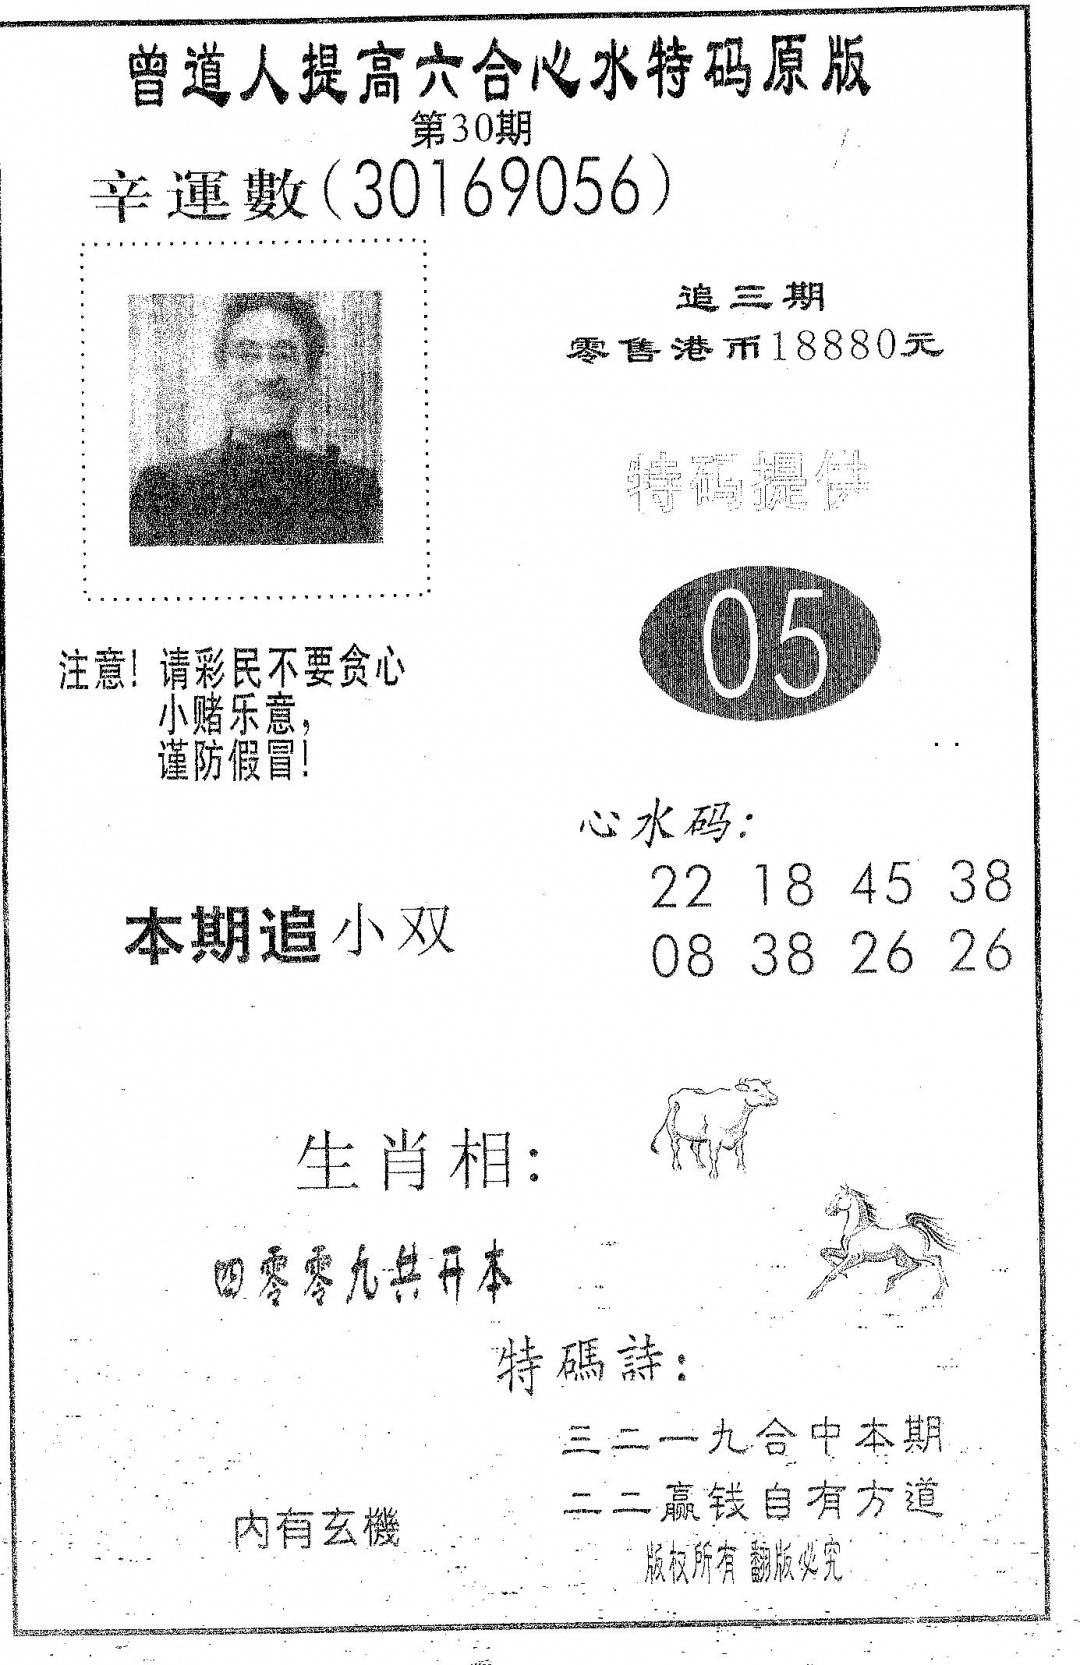 曾道人提高六合心水特码原版
第30期
辛運數(30169056)
追三期
零售港币18880元
特码提供
05
注意!请彩民不要贪心
小赌乐意,
谨防假冒!
心水码:
22 18 45 38
08 38 26 26
本期追小双
生肖相:
四零零九共开本
特碼詩:
三二一九合中本期
二二赢钱自有方道
内有玄機
版权所有 翻版必究